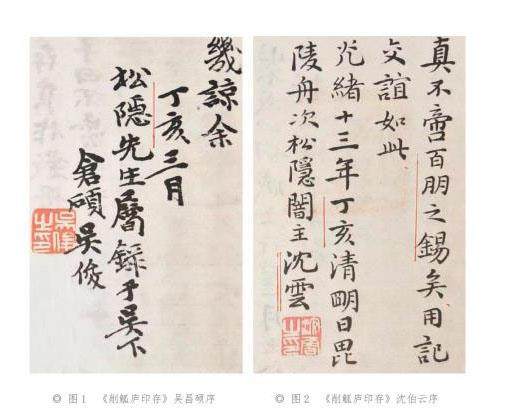 幾諒余
丁亥三月
松隱先生屬錄于吴下
倉碩吴俊
吴俊之印
◎ 图1 《削觚庐印存》吴昌硕序
真不啻百朋之錫矣用記
交誼如此
光緒十三年丁亥清明日毘
陵舟次松隱闇主沈雲
◎ 图2 《削觚庐印存》沈伯云序